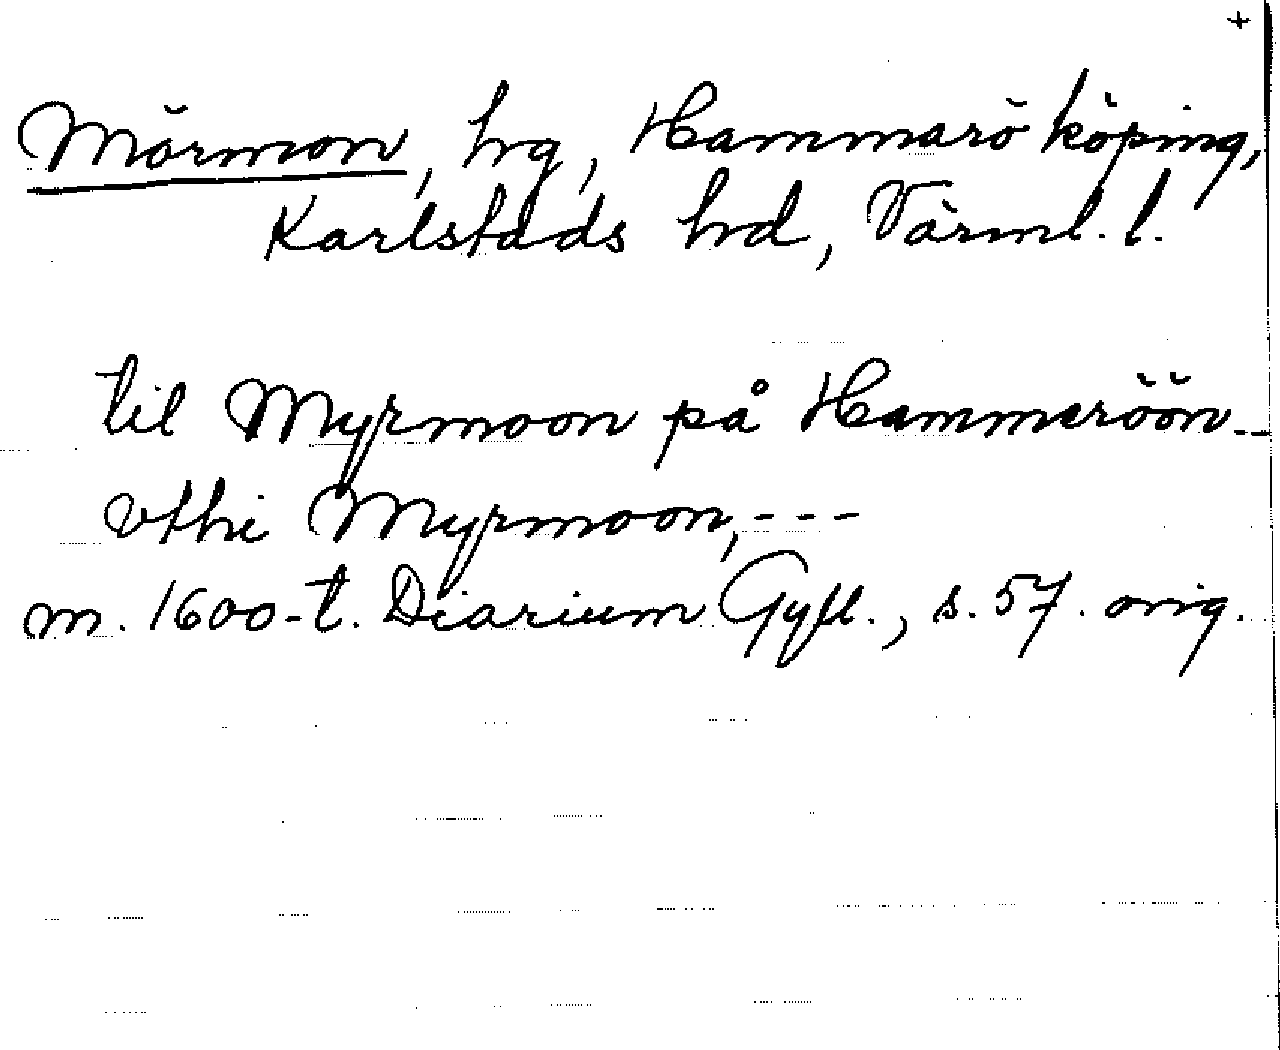 +
Mörmon, hg, Hammarö köping,
Karlstads hd, Värml. l.
til Myrmoon på Hammeröön --
vthi Myrmoon, ---
m. 1600-t. Diarium Gyll., s. 57. orig.